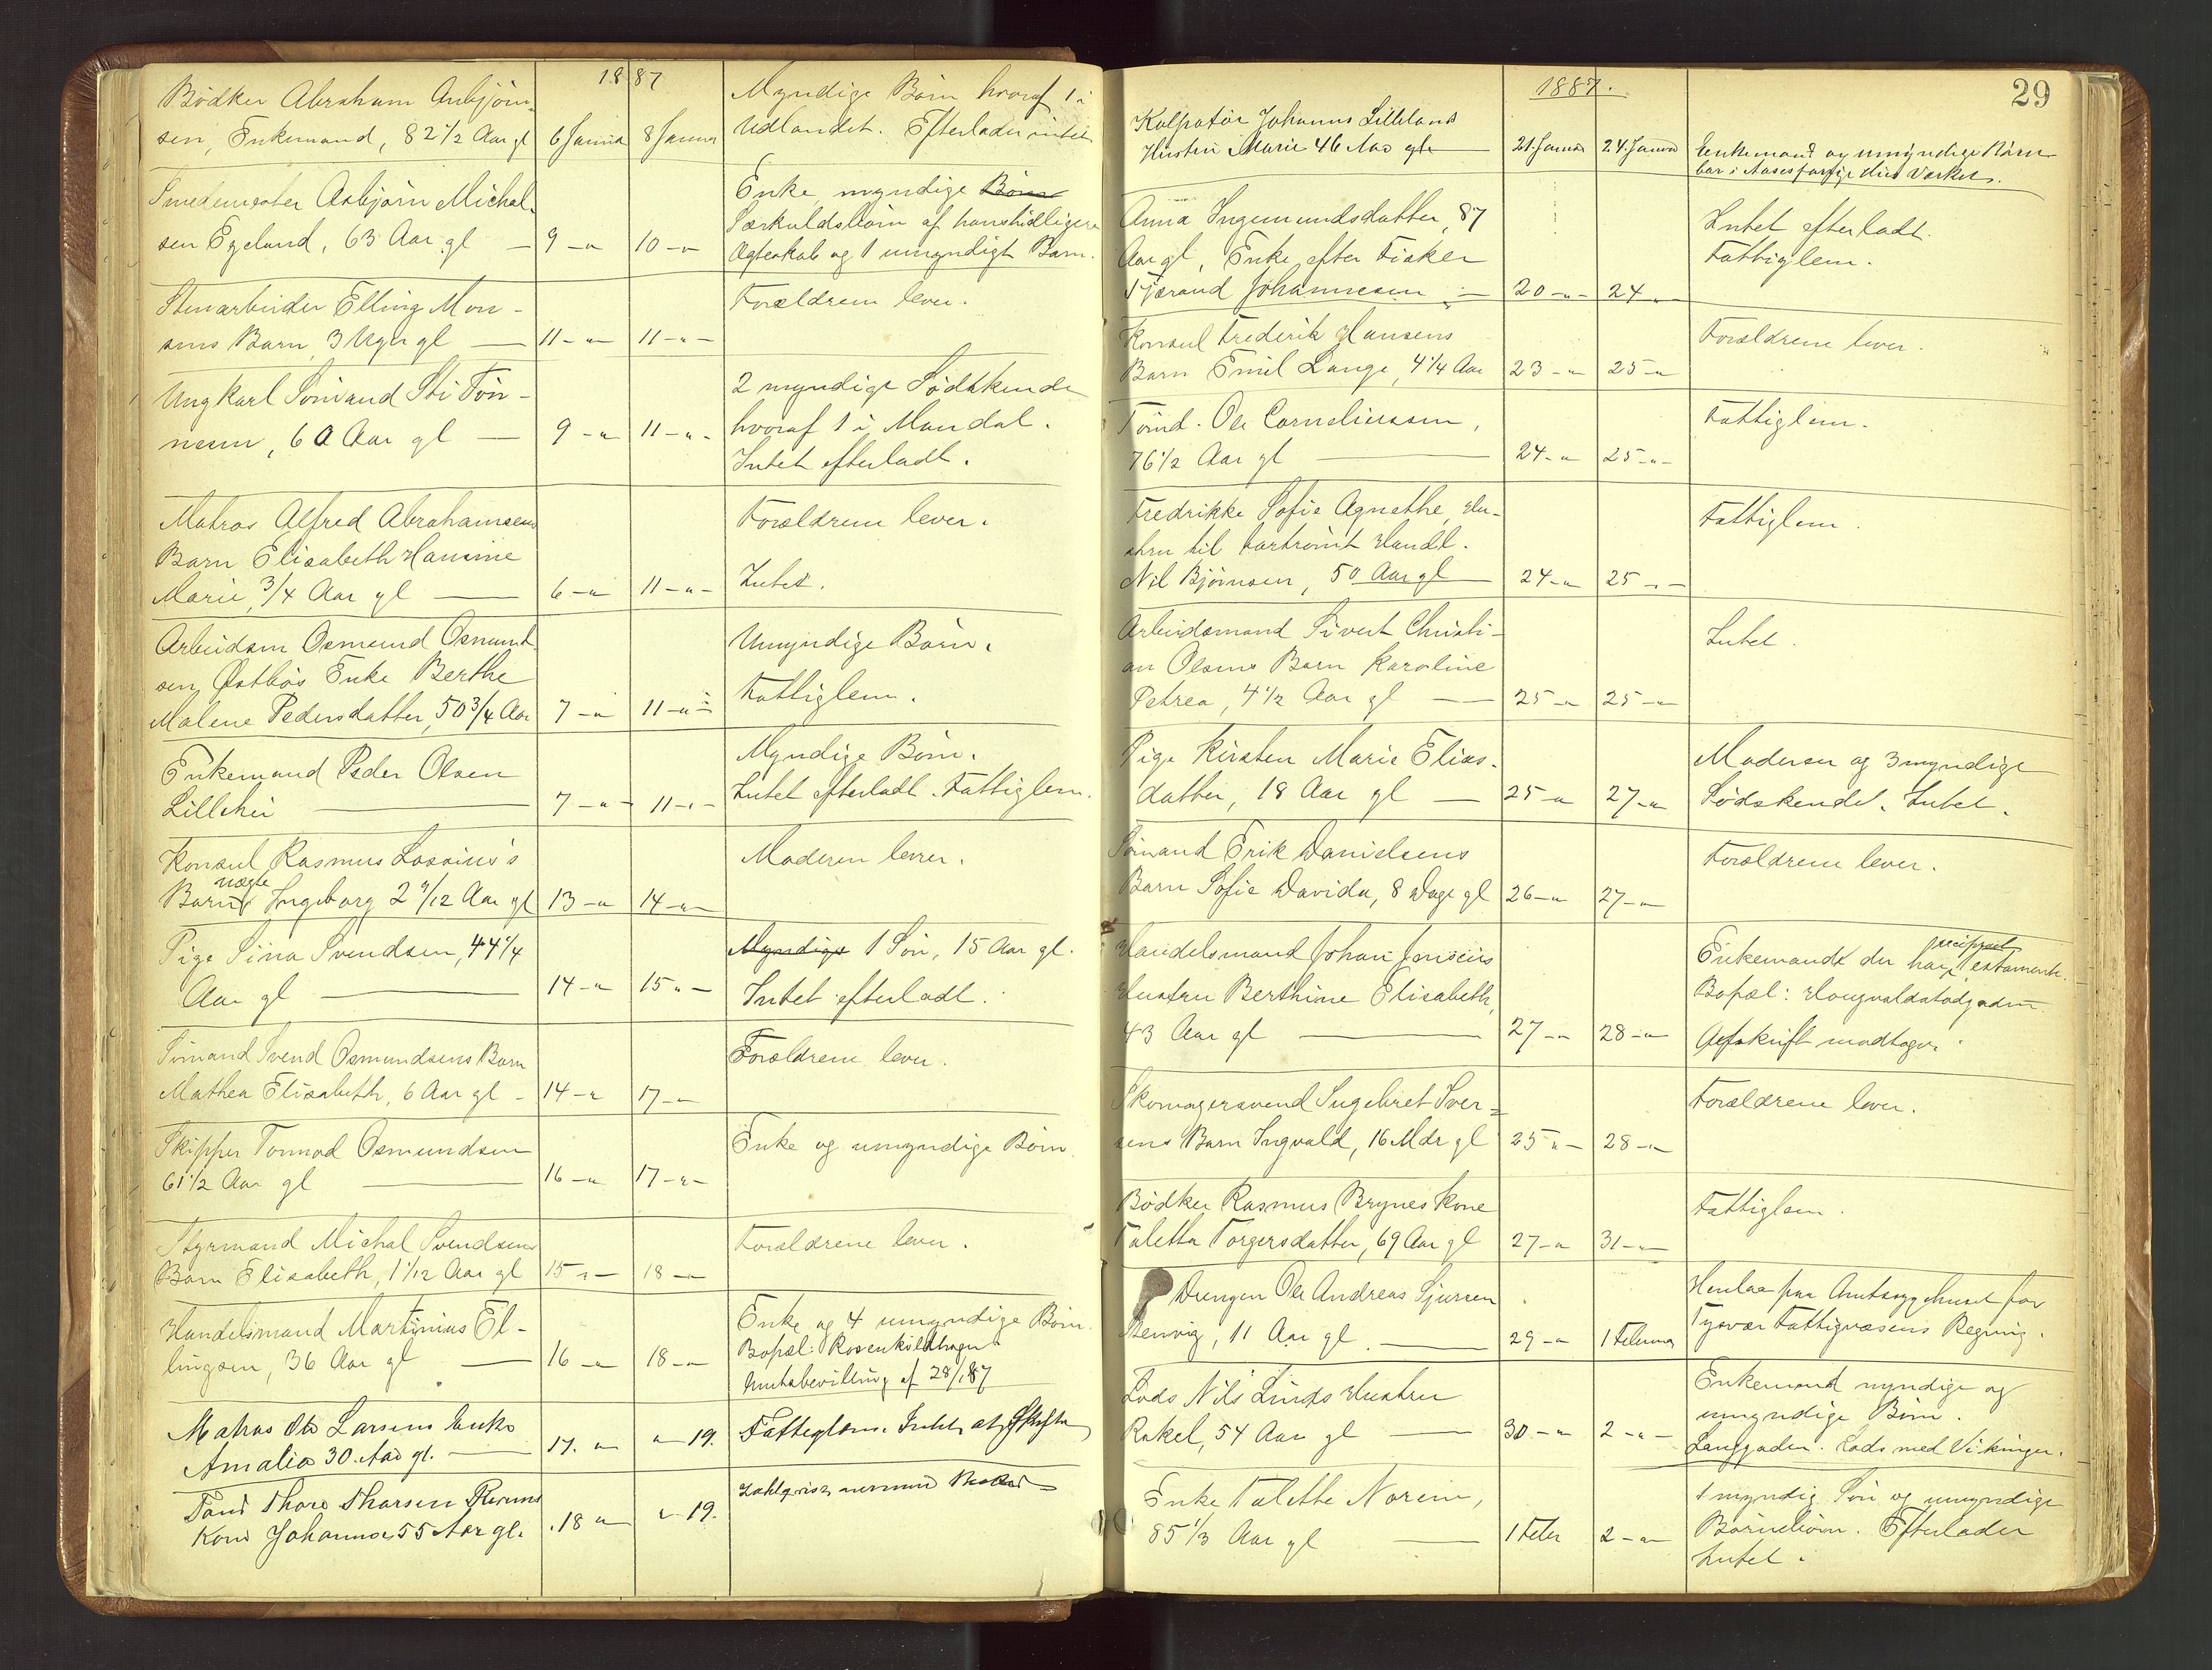 1887
Bödker Abraham Anbjörn-
sen, Enkemand, 82 1/2 Aar gl 6 Januar 8 Januar
Myndige Börn hvoraf 1 i
Udlandet. Efterlader intet
Smedemester Asbjörn Michel-
sen Egeland, 63 Aar gl — 9 - " 10 - "
Enke, myndige Börn
Særkuldsbörn af hans tidligere
Ægteskab og 1 umyndigt Barn.
Stenarbeider Elling Mon-
sens Barn, 3 Uger gl — 11 - " - 11 - " -
Forældrene lever.
Ungkarl Sömand Sti Tön-
nesen, 60 Aar gl — 9 - " 11 - " -
2 myndige Södskende
hvoraf 1 i Mandal.
Intet efterladt.
Matros Alfred Abrahamsens
Barn Elisabeth Hansine
Marie, 3/4 Aar gl — 6 - " 11 - " -
Forældrene lever.
Intet.
Arbeidsm Osmund Osmund-
sen Østbös Enke Berthe
Malene Pedersdatter, 50 3/4 Aar 7 - " 11 - " -
Umyndige Börn.
Fattiglem.
Enkemand Peder Olsen
Lillehei — 7 - " - 11 - " -
Myndige Börn.
Intet efterladt. Fattiglem.
Konsul Rasmus Lossius's
ægte
Barn Ingeborg 2 9/12 Aar gl 13 - " 14 - " -
Moderen lever.
Pige Sina Svendsen, 44 1/4
Aar gl — 14 - " 15 " -
Myndige 1 Sön, 15 Aar gl.
Intet efterladt.
Sömand Svend Osmundsens Barn
Mathea Elisabeth, 6 Aar gl - 14 - " 17 - "
Forældrene lever.
Skipper Tormod Osmundsen
61 1/2 Aar gl — 16 - " 17 - " -
Enke og umyndige Börn.
Styrmand Michal Svendsens
Barn Elisabeth, 1 1/12 Aar gl 15 " - 18 - "
Forældrene lever.
Handelsmand Martinius El-
lingsen, 36 Aar gl — 16 - " 18 - "
Enke og 4 umyndige Börn.
Bopæl: Rosenkildehagen
af 28/1 87
Matros Ole Larsens Enke
Amalia 30. Aar gl. — 17. " " 19.
Fattiglem. Intet at skifte
Thore Thorsen
Kone Johanna 55 Aar gl. 18 " " 19.
nermere Besked
29
1887.
Johannes Lilleland
Hustru Marie 46 Aar gl — 21. Januar 24. Januar
Enkemand og umyndige Börn
bor i
Anna Ingemundsdatter, 87
Aar gl, Enke efter Fisker
Tjærand Johannesen — 20 - " - 24 " -
Intet efterladt.
Fattiglem.
Konsul Frederik Hansens
Barn Emil Lange, 4 1/4 Aar 23 - " 25 - "
Forældrene lever.
Tömd. Ole Corneliussen,
76 1/2 Aar gl — 24 - " 25 - " -
Fattiglem.
Fredrikke Sofie Agnethe, Hu-
stru til bortrömt Handel.
Nil Björnsen, 50 Aar gl 24 - " 25 - " -
Fattiglem.
Arbeidsmand Sivert Christi-
an Olsens Barn Karoline
Petrea, 4 1/2 Aar gl — 25 - " 25 - "
Intet.
Pige Kirsten Marie Elias-
datter, 18 Aar gl — 25 - " 27 - "
Moderen og 3 myndige
Södskende. Intet.
Sömand Erik Danielsens
Barn Sofie Davida, 8 Dage gl 26 - " 27 - "
Forældrene lever.
Handelsmand Johan Jensens
Hustru Berthine Elisabeth,
43 Aar gl — 27 - " 28 - "
reciprost
Enkemand der har Testamente.
Bopæl:
Genskrift modtagen.
Skomagersvend Ingebret Iver-
sens Barn Ingvald, 16 Mdr gl 25 " - 28 - "
Forældrene lever.
Bödker Rasmus Brynes Kone
Taletta Torgersdatter, 69 Aar gl 27 - " 31 - "
Fattiglem.
Drengen Ole Andreas Sjursen
Stenvig, 11 Aar gl. — 29 - " 1 Februar
Henlaa paa Amtssygehuset for
Tysvær Fattigvæsens Regning.
Lods Nils Linds Hustru
Rakel, 54 Aar gl — 30 - " 2 - " -
Enkemand myndige og
umyndige Börn.
Langgaden. Lods med Vikingen.
Enke Talette Norem,
85 1/3 Aar gl — 1 Febr 2 - "
1 myndig Sön og umyndige
Börnebörn. Efterlader
Intet.